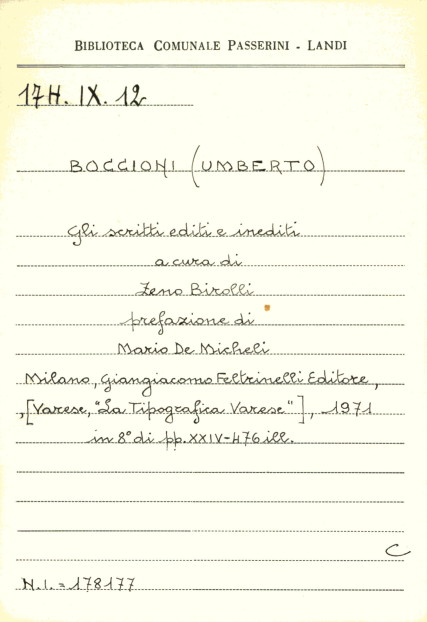 BIBLIOTECA COMUNALE PASSERINI - LANDI
17H. IX. 12
BOCCIONI (UMBERTO)
Gli scritti editi e inediti
a cura di
Zeno Birolli
prefazione di
Mario De Micheli
Milano, Giangiacomo Feltrinelli Editore,
,[Varese, "La Tipografica Varese"], 1971
in 8° di pp. XXIV-476 ill.
C
N.I. = 178177